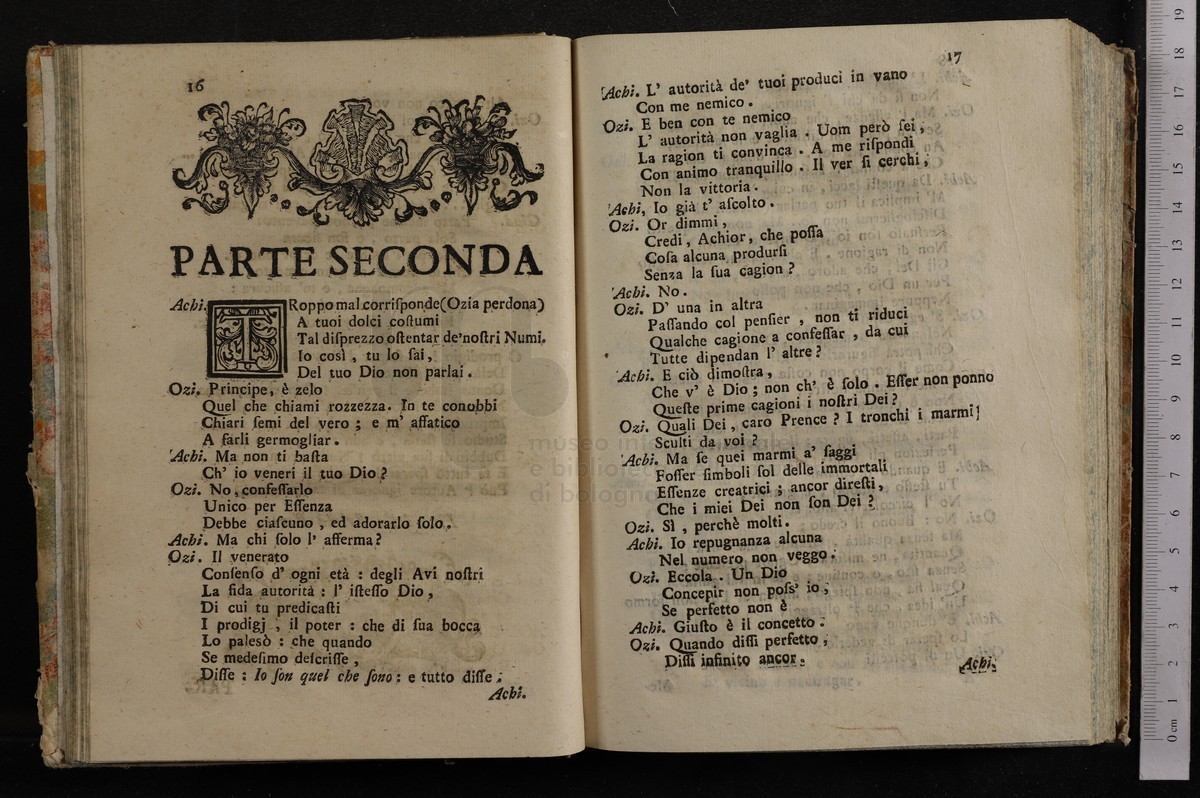 16
PARTE SECONDA
Achi. TRoppo mal corriſponde (Ozia perdona)
A tuoi dolci coſtumi
Tal diſprezzo oſtentar de' noſtri Numi.
Io così , tu lo ſai ,
Del tuo Dio non parlai .
Ozi. Principe, è zelo
Quel che chiami rozzezza. In te conobbi
Chiari ſemi del vero ; e m' affatico
A farli germogliar .
Achi. Ma non ti baſta
Ch' io veneri il tuo Dio ?
Ozi. No, confeſſarlo
Unico per Eſſenza
Debbe ciaſcuno , ed adorarlo ſolo .
Achi. Ma chi ſolo l' afferma ?
Ozi. Il venerato
Conſenſo d' ogni età : degli Avi noſtri
La fida autorità : l' iſteſſo Dio ,
Di cui tu predicaſti
I prodigj , il poter : che di ſua bocca
Lo palesò : che quando
Se medeſimo deſcriſſe ,
Diſſe : Io ſon quel che ſono : e tutto diſſe .
Achi.
17
Achi. L' autorità de' tuoi produci in vano
Con me nemico .
Ozi. E ben con te nemico
L' autorità non vaglia . Uom però ſei ,
La ragion ti convinca . A me riſpondi
Con animo tranquillo . Il ver ſi cerchi ,
Non la vittoria .
Achi. Io già t' aſcolto .
Ozi. Or dimmi ,
Credi , Achior , che poſſa
Coſa alcuna produrſi
Senza la ſua cagion ?
Achi. No .
Ozi. D' una in altra
Paſſando col penſier , non ti riduci
Qualche cagione a confeſſar , da cui
Tutte dipendan l' altre ?
Achi. E ciò dimoſtra ,
Che v' è Dio ; non ch' è ſolo . Eſſer non ponno
Queſte prime cagioni i noſtri Dei ?
Ozi. Quali Dei , caro Prence ? I tronchi i marmi
Sculti da voi ?
Achi. Ma ſe quei marmi a' ſaggi
Foſſer ſimboli ſol delle immortali
Eſſenze creatrici ; ancor direſti ,
Che i miei Dei non ſon Dei ?
Ozi. Sì , perchè molti .
Achi. Io repugnanza alcuna
Nel numero non veggo .
Ozi. Eccola . Un Dio
Concepir non poſs' io ,
Se perfetto non è
Achi. Giuſto è il concetto .
Ozi. Quando diſſi perfetto ,
Diſſi infinito ancor .
Achi.